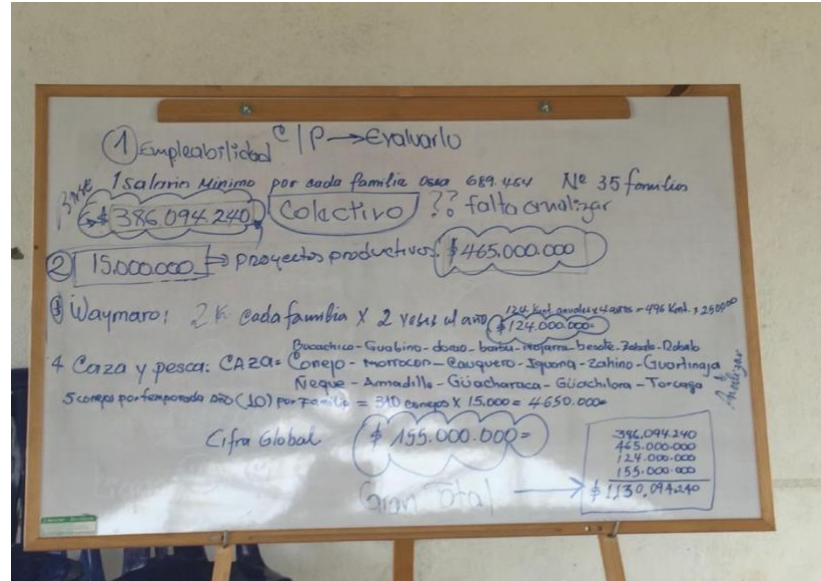 1 Empleabilidad C/P → Evaluarlo
1 Salario Minimo por cada familia osea 689.454 Nº 35 familias
Base $ 386.094.240 Colectivo ?? falta analizar
2 15.000.000 → proyectos productivos. $ 465.000.000
3 Waymaro: 2K cada familia x 2 veses al año $ 124.000.000=
124 Kmt anuales x 4 años = 496 Kmt. x 250000
Bocachico - Guabino - dorao - barbu - mojarra - besote - Robalo
4 Caza y pesca: CAZA= Conejo - morrocon - Cauquero - Iguana - Zahino - Guartinaja
Ñeque - Armadillo - Güacharaca - Güachilora - Torcaza
Analizar
5 conejos por temporada año (10) por familia = 310 conejos x 15.000 = 4650.000=
Cifra Global $ 155.000.000=
386.094.240
465.000.000
124.000.000
155.000.000
Gran Total → $ 1130.094.240